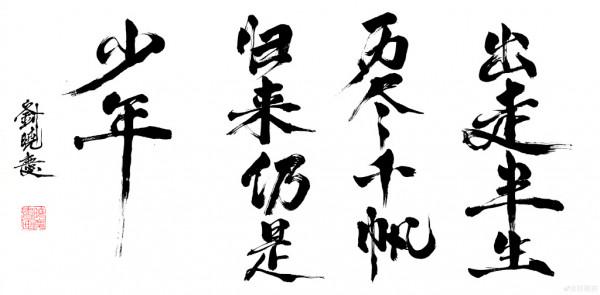 出走半生
历尽千帆
归来仍是
少年
劉曉慶